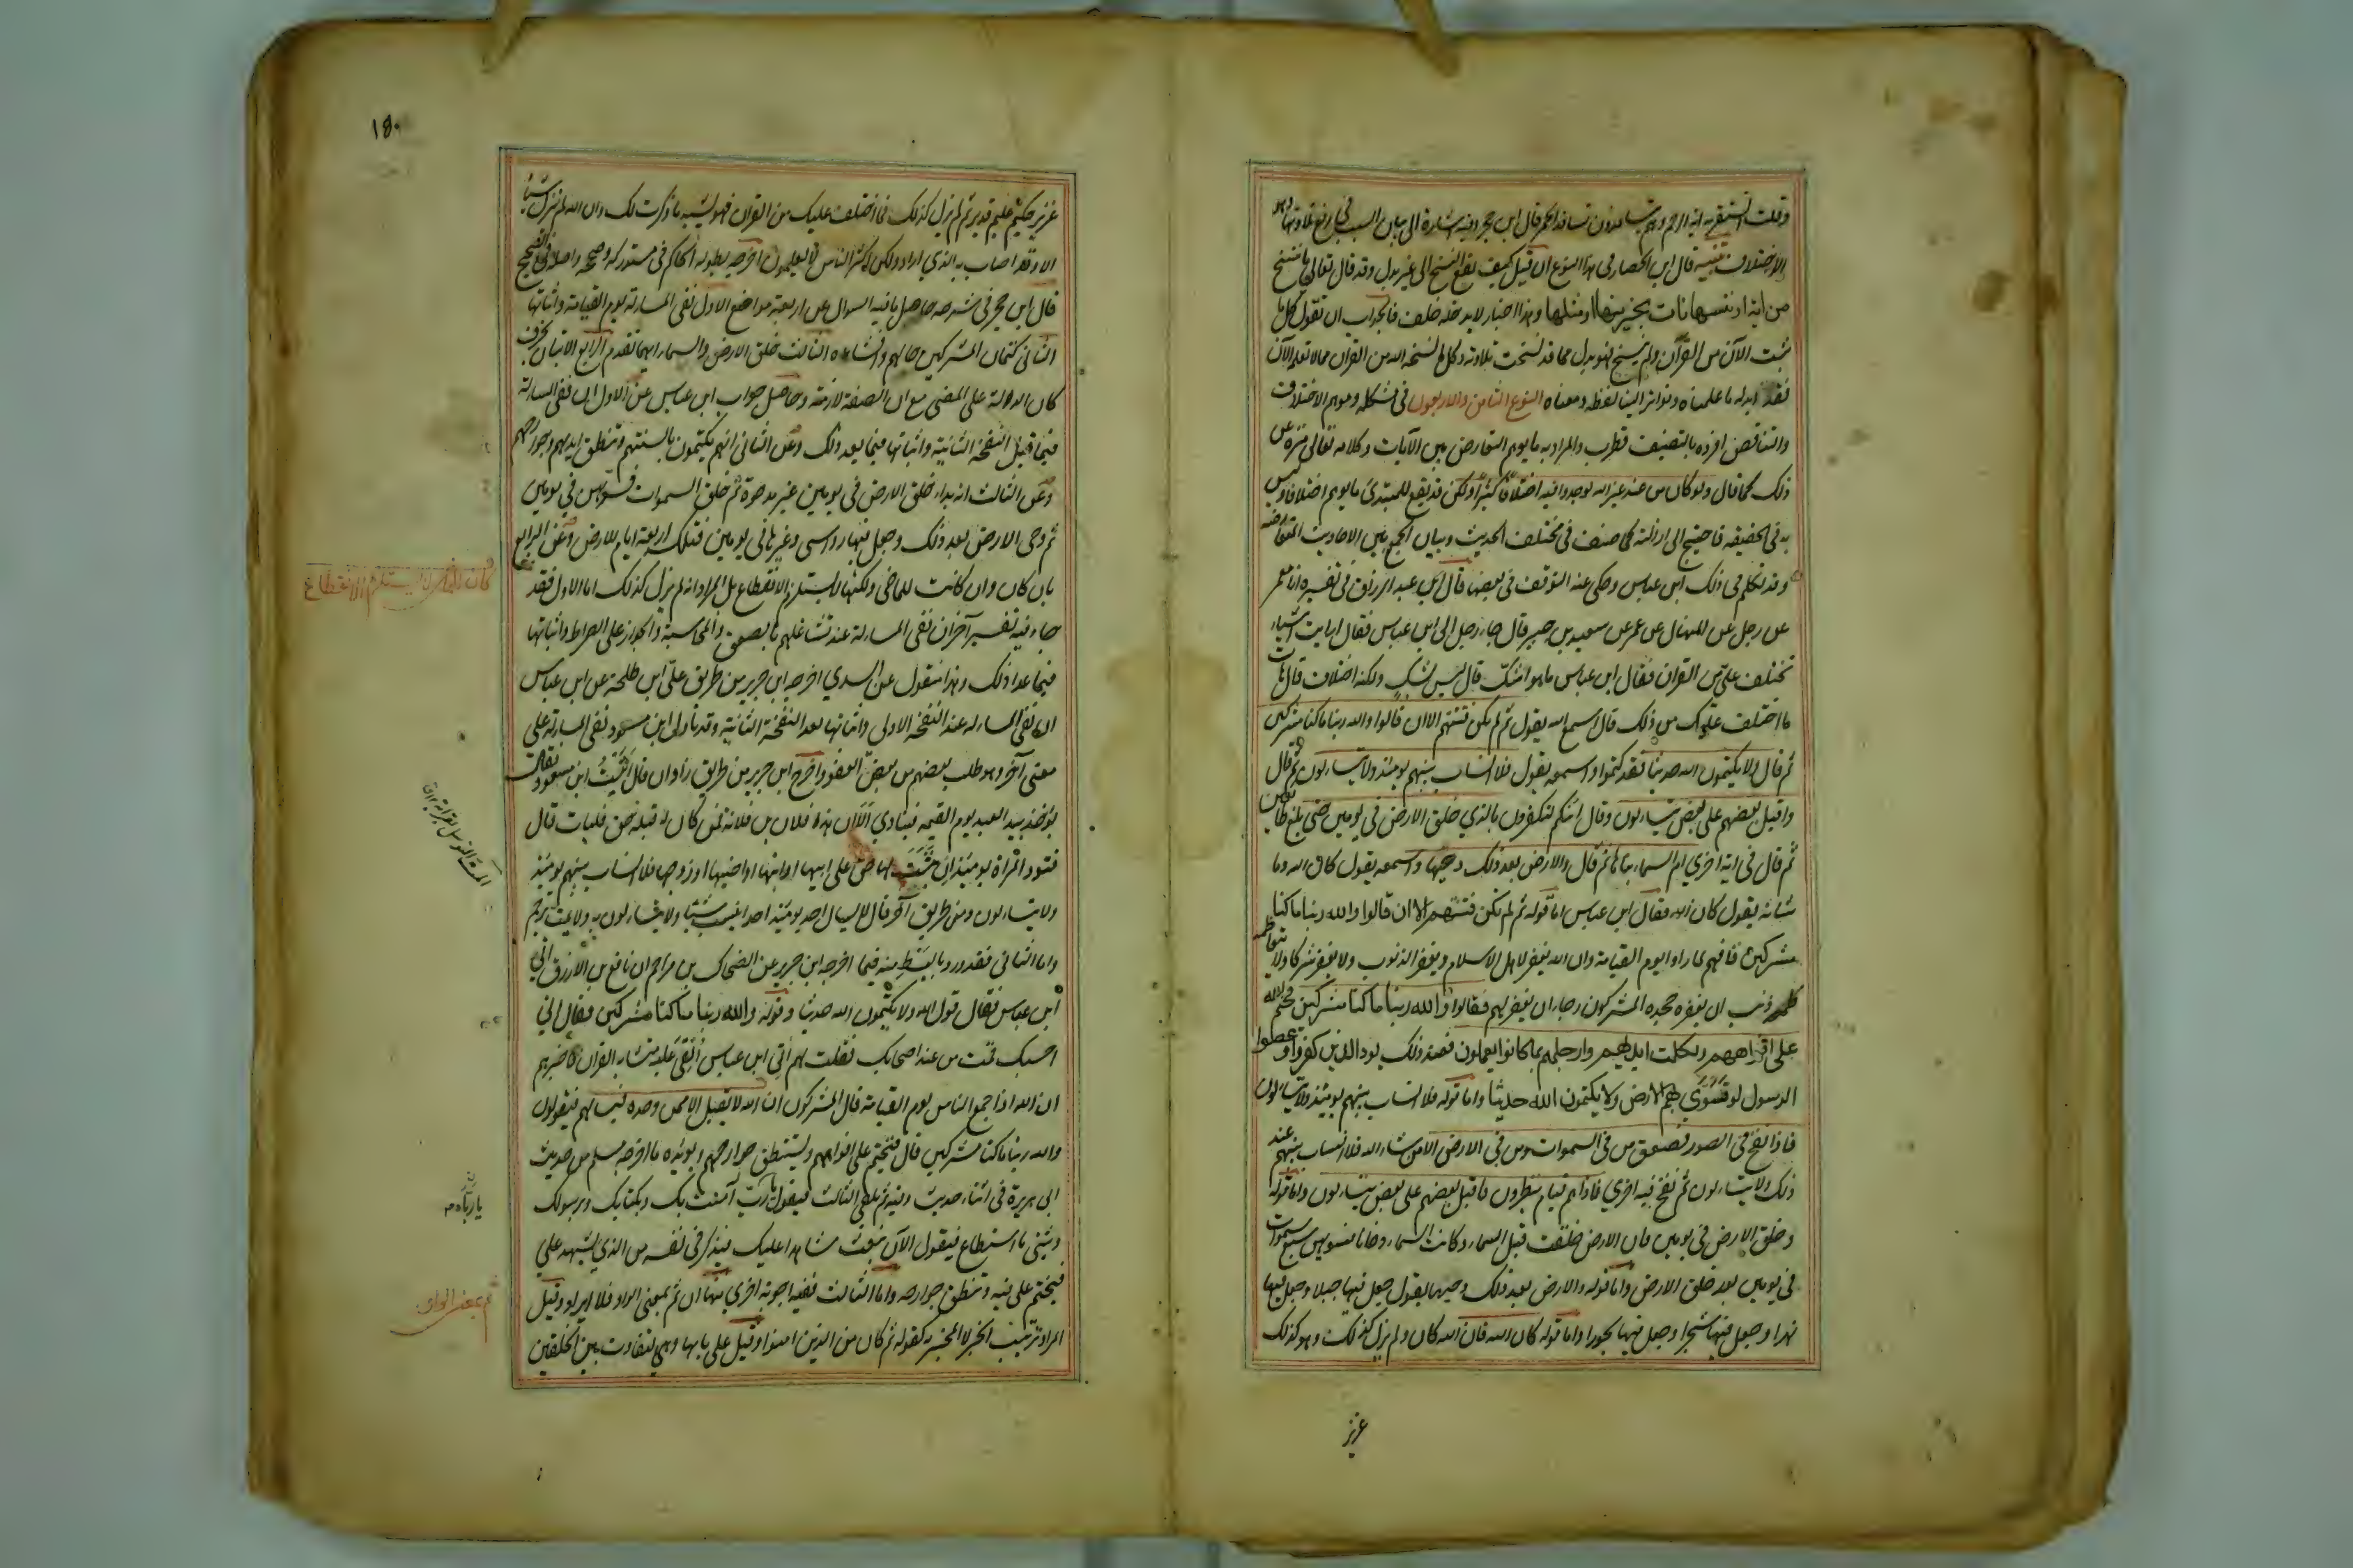 وقلت استقريه اية الرجم وهم يتسافدون تسافد الحمر قال ابن حجر وفيه اشارة الى بيان السبب في رفع تلاوتها وهو
الاختلاف تنبيه قال ابن الحصار في هذا النوع ان قيل كيف يقع النسخ الى غير بدل وقد قال تعالى ما ننسخ
من اية او ننسها نات بخير منها او مثلها وهذا اخبار لا يدخله خلف فالجواب ان تقول كل ما
ثبت الآن من القرآن ولم ينسخ فهو بدل مما قد نسخت تلاوته وكل ما نسخه الله من القرآن مما لا نعلمه الآن
فقد ابدله بما علمناه وتواتر الينا لفظه ومعناه النوع الثامن والاربعون في مشكله وموهم الاختلاف
والتناقض افرده بالتصنيف قطرب والمراد به ما يوهم التعارض بين الآيات وكلامه تعالى منزه عن
ذلك كما قال ولو كان من عند غير الله لوجدوا فيه اختلافا كثيرا ولكن قد يقع للمبتدئ ما يوهم اختلافا وليس
به في الحقيقه فاحتيج الى ازالته كما صنف في مختلف الحديث وبيان الجمع بين الاحاديث المتعارضه
وقد تكلم في ذلك ابن عباس وحكى عنه التوقف في بعضها قال عبد الرزاق في تفسيره انا معمر
عن رجل عن المنهال بن عمر عن سعيد بن جبير قال جاء رجل الى ابن عباس فقال ارايت اشياء
تختلف علي من القران فقال ابن عباس ما هو اشك قال ليس بشك ولكنه اختلاف قال هات
ما اختلف عليك من ذلك قال اسمع الله يقول ثم لم تكن فتنتهم الا ان قالوا والله ربنا ما كنا مشركين
ثم قال ولا يكتمون الله حديثا فقد كتموا واسمعه يقول فلا انساب بينهم يومئذ ولا يتساءلون ثم قال
واقبل بعضهم على بعض يتساءلون وقال ائنكم لتكفرون بالذي خلق الارض في يومين حتى بلغ طائعين
ثم قال في اية اخرى ام السماء بناها ثم قال والارض بعد ذلك دحيها واسمعه يقول كان الله وما
شانه يقول كان الله فقال ابن عباس اما قوله ثم لم تكن فتنتهم الا ان قالوا والله ربنا ما كنا
مشركين فانهم لما راوا يوم القيامة وان الله يغفر لاهل الاسلام ويغفر الذنوب ولا يغفر شركا ولا يتعاظمه
ذنب ان يغفره جحده المشركون رجاء ان يغفر لهم فقالوا والله ربنا ما كنا مشركين فختم الله
على افواههم وتكلمت ايديهم وارجلهم بما كانوا يعملون فعند ذلك يود الذين كفروا وعصوا
الرسول لو تسوى بهم الارض ولا يكتمون الله حديثا واما قوله فلا انساب بينهم يومئذ ولا يتساءلون
فاذا نفخ في الصور فصعق من في السموات ومن في الارض الا من شاء الله فلا انساب بينهم عند
ذلك ولا يتساءلون ثم نفخ فيه اخرى فاذا هم قيام ينظرون واقبل بعضهم على بعض يتساءلون واما قوله
وخلق الارض في يومين فان الارض خلقت قبل السماء وكانت السماء دخانا فسويهن سبع سموات
في يومين بعد خلق الارض واما قوله والارض بعد ذلك دحيها يقول جعل فيها جبلا وجعل فيها
نهرا وجعل فيها شجرا وجعل فيها بحورا واما قوله كان الله فان الله كان ولم يزل كذلك وهو كذلك
عزيز
١٥٠
عزيز حكيم عليم قدير ثم لم يزل كذلك فما اختلف عليك من القران فهو يشبه ما ذكرت لك وان الله لم ينزل شيئا
الا وقد اصاب به الذي اراد ولكن اكثر الناس لا يعلمون اخرجه بطوله الحاكم في مستدركه وصححه واصله في الصحيح
قال ابن حجر في شرحه حاصل ما فيه السوال عن اربعة مواضع الاول نفي المساءلة يوم القيامة واثباتها
الثاني كتمان المشركين حالهم وافشاءه الثالث خلق الارض والسماء ايهما تقدم الرابع الاتيان بحرف
كان الدالة على المضي مع ان الصفة لازمة وحاصل جواب ابن عباس عن الاول ان نفي المساءلة
فيما قبل النفخة الثانية واثباتها فيما بعد ذلك وعن الثاني انهم يكتمون بالسنتهم وتنطق ايديهم وجوارحهم
وعن الثالث انه بداء خلق الارض في يومين غير مدحوة ثم خلق السموات فسويهن في يومين
ثم دحى الارض بعد ذلك وجعل فيها رواسي وغيرها في يومين فتلك اربعة ايام للارض وعن الرابع
بان كان وان كانت للماضي ولكنها لا تستلزم الانقطاع بل المراد انه لم يزل كذلك اما الاول فقد
جاء فيه تفسير آخر ان نفي المساءلة عند تشاغلهم بالصعق والمحاسبة والجواز على الصراط واثباتها
فيما عدا ذلك وهذا منقول عن السدي اخرجه ابن جرير من طريق علي ابن طلحة عن ابن عباس
ان نفي المساءله عند النفخة الاولى واثباتها بعد النفخة الثانية وقد تاول ابن مسعود نفي المساءلة على
معنى آخر وهو طلب بعضهم من بعض العفو واخرج ابن جرير من طريق زاذان قال اتيت ابن مسعود فقال
يؤخذ بيد العبد يوم القيمه فينادي الا ان هذا فلان بن فلانة فمن كان له قبله حق فليات قال
فتود المراة يومئذ ان يثبت لها حق على ابيها او ابنها او اخيها او زوجها فلا انساب بينهم يومئذ
ولا يتساءلون ومن طريق آخر قال لا يسال احد يومئذ احدا بنسب شيئا ولا يتساءلون به ولا يمت برحم
واما الثاني فقد ورد بابسط منه فيما اخرجه ابن جرير عن الضحاك بن مزاحم ان نافع بن الازرق اتى
ابن عباس فقال قول الله ولا يكتمون الله حديثا وقوله والله ربنا ما كنا مشركين فقال اني
احسبك قمت من عند اصحابك فقلت لهم اتى ابن عباس القي عليه متشابه القران فاخبرهم
ان الله اذا جمع الناس يوم القيامة قال المشركون ان الله لا يقبل الا ممن وحده فيسالهم فيقولون
والله ربنا ما كنا مشركين قال فيختم على افواههم وتستنطق جوارحهم ويؤيده ما اخرجه مسلم من حديث
ابي هريرة في اثناء حديث وفيه ثم يلقى الثالث فيقول يا رب آمنت بك وبكتابك وبرسولك
ويثني ما استطاع فيقول الآن نبعث شاهدا عليك فيذكر في نفسه من الذي يشهد علي
فيختم على فيه وتنطق جوارحه واما الثالث ففيه اجوبة اخرى منها ان ثم بمعنى الواو فلا ايراد وقيل
المراد ترتيب الخبر لا المخبر به كقوله ثم كان من الذين امنوا وقيل على بابها وهي لتفاوت بين الخلقتين
كان للماضي لا يستلزم الانقطاع
المت التوسل بقرابة
يا رباه
ثم بمعنى الواو